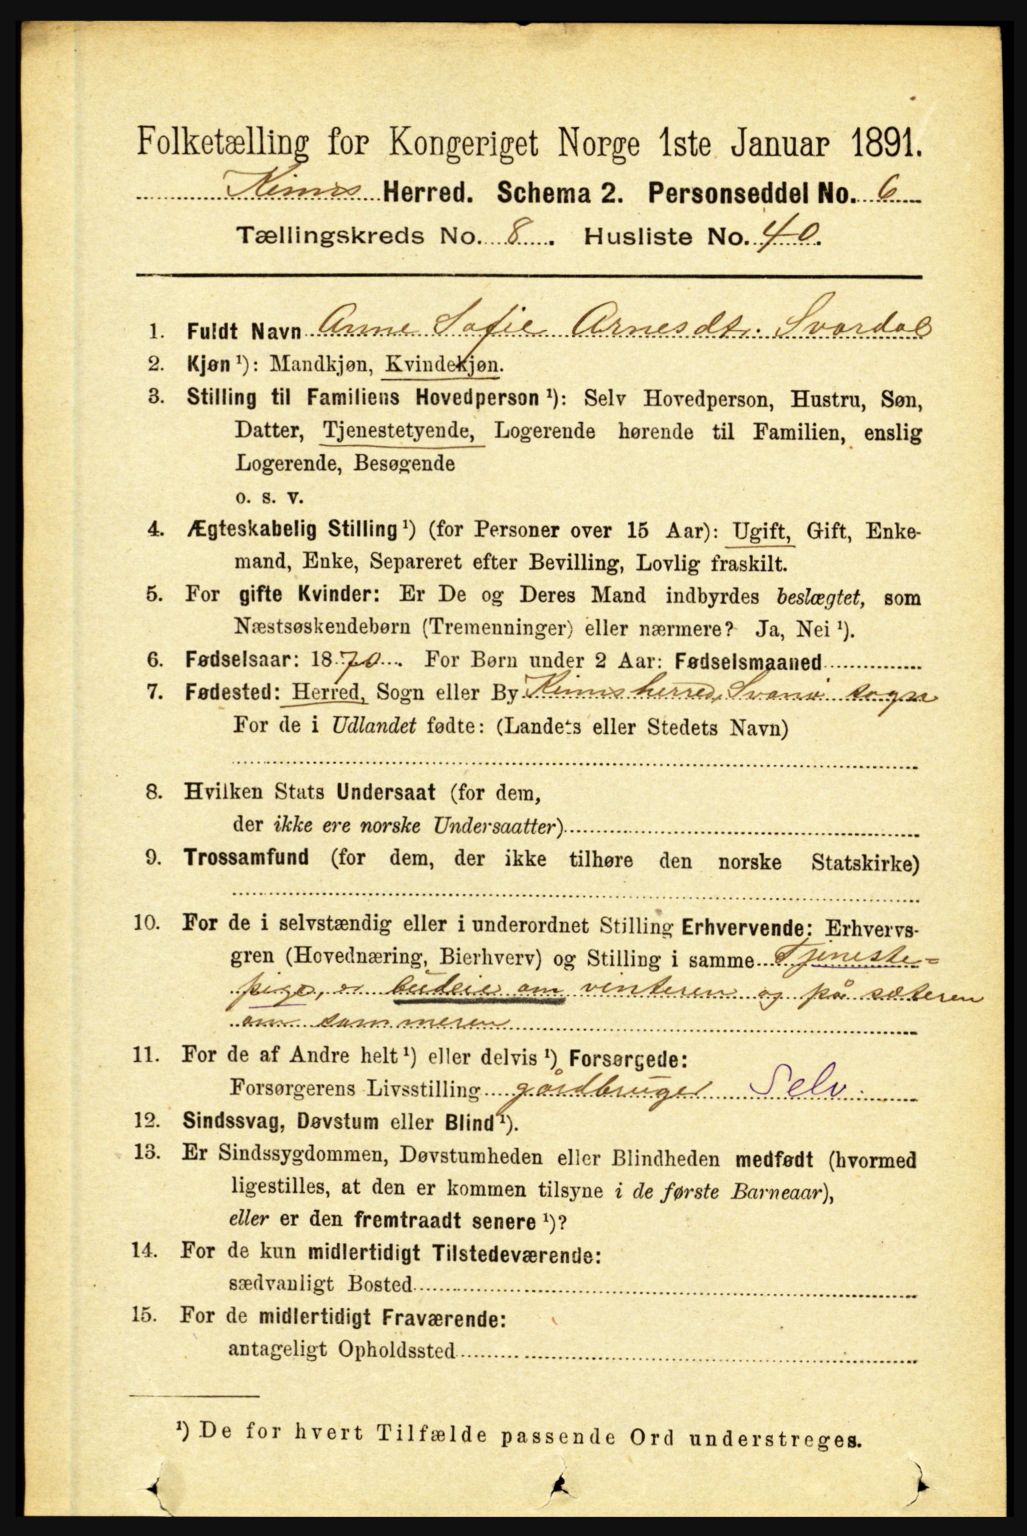 Folketælling for Kongeriget Norge 1ste Januar 1891.
Kinns Herred. Schema 2. Personseddel No. 6
Tællingskreds No. 8. Husliste No. 40.
1. Fuldt Navn Anne Sofie Arnesdt. Svardal
2. Kjøn ¹): Mandkjøn, Kvindekjøn.
3. Stilling til Familiens Hovedperson ¹): Selv Hovedperson, Hustru, Søn,
Datter, Tjenestetyende, Logerende hørende til Familien, enslig
Logerende, Besøgende
o. s. v.
4. Ægteskabelig Stilling ¹) (for Personer over 15 Aar): Ugift, Gift, Enke-
mand, Enke, Separeret efter Bevilling, Lovlig fraskilt.
5. For gifte Kvinder: Er De og Deres Mand indbyrdes beslægtet, som
Næstsøskendebørn (Tremenninger) eller nærmere? Ja, Nei ¹).
6. Fødselsaar: 1870. For Børn under 2 Aar: Fødselsmaaned
7. Fødested: Herred, Sogn eller By Kinns herred, Svanø sogn
For de i Udlandet fødte: (Landets eller Stedets Navn)
8. Hvilken Stats Undersaat (for dem,
der ikke ere norske Undersaatter)
9. Trossamfund (for dem, der ikke tilhøre den norske Statskirke)
10. For de i selvstændig eller i underordnet Stilling Erhvervende: Erhvervs-
gren (Hovednæring, Bierhverv) og Stilling i samme Tjeneste=
pige, er budeie om vinteren og på sæteren
om sommeren
11. For de af Andre helt ¹) eller delvis ¹) Forsørgede:
Forsørgerens Livsstilling gårdbruger Selv.
12. Sindssvag, Døvstum eller Blind ¹).
13. Er Sindssygdommen, Døvstumheden eller Blindheden medfødt (hvormed
ligestilles, at den er kommen tilsyne i de første Barneaar),
eller er den fremtraadt senere ¹)?
14. For de kun midlertidigt Tilstedeværende:
sædvanligt Bosted
15. For de midlertidigt Fraværende:
antageligt Opholdssted
¹) De for hvert Tilfælde passende Ord understreges.